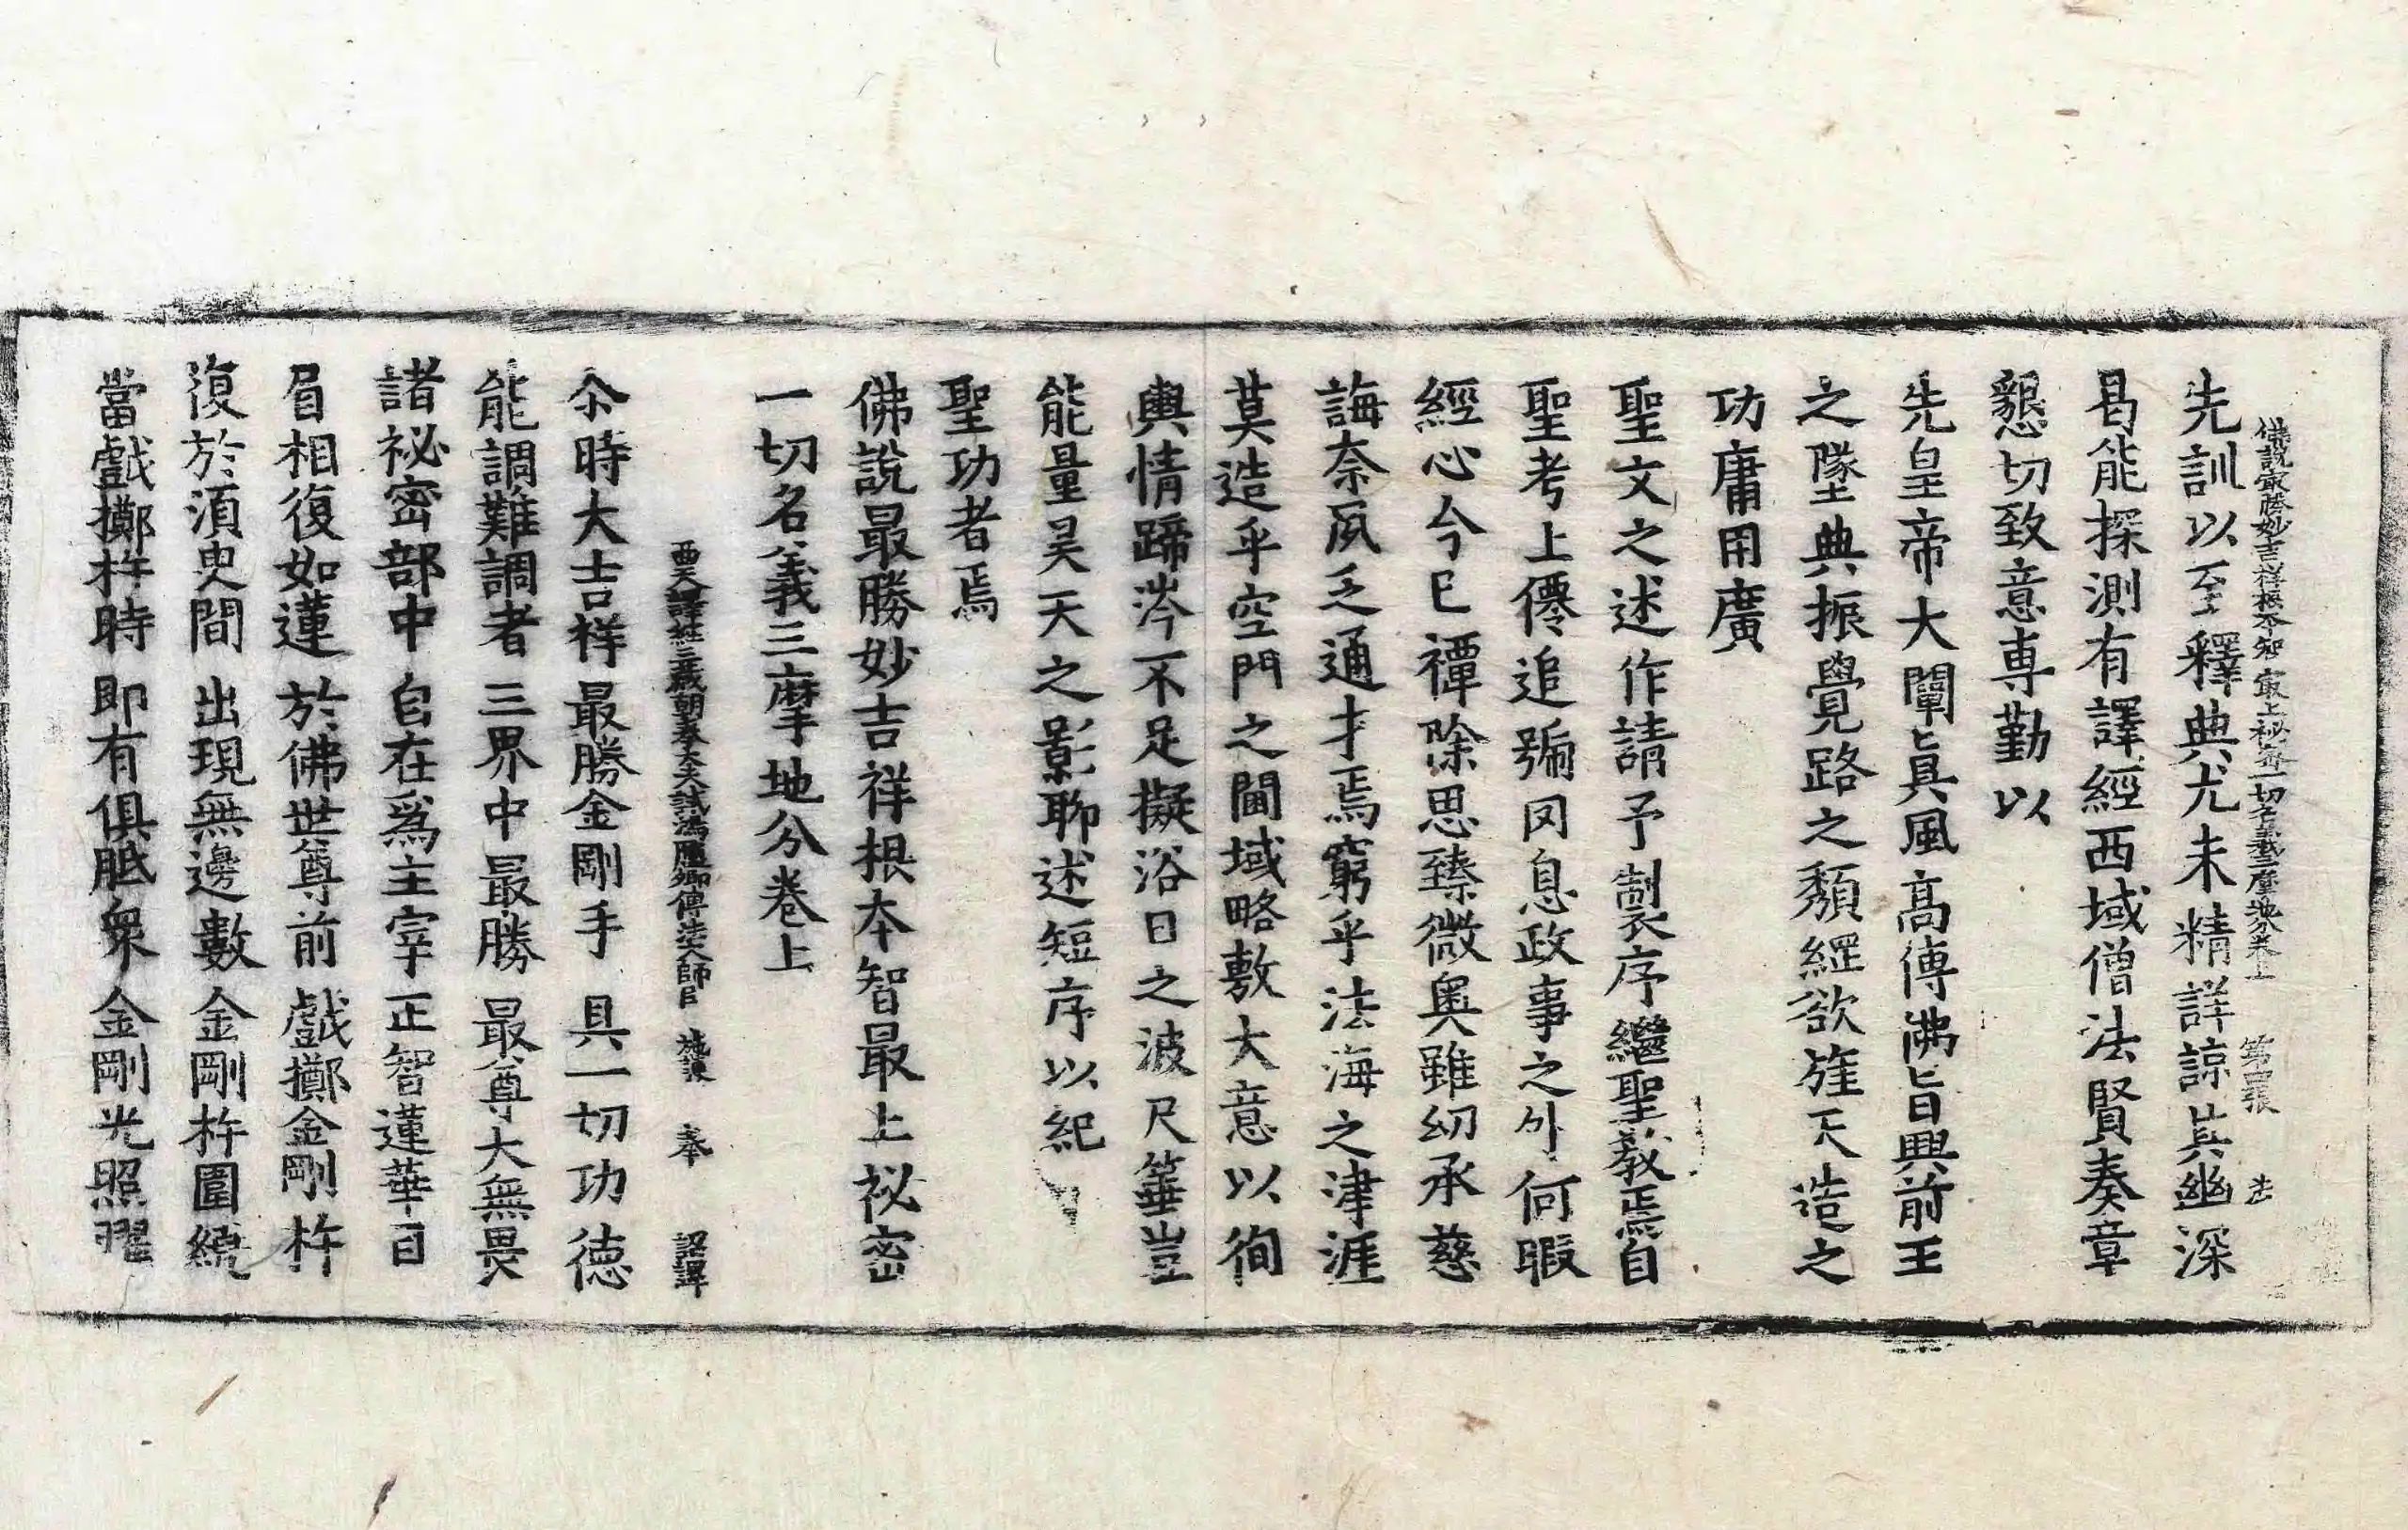 佛說冣勝妙吉祥根本智冣上秘密一切名義三摩地分卷上 第四張 法
先訓以至釋典尤未精詳諒其幽深
曷能探測有譯經西域僧法賢奏章
懇切致意専勤以
先皇帝大闡真風髙傳佛旨興前王
之墜典振覺路之頹綱欲旌天造之
功庸用廣
聖文之述作請予制序繼聖教焉自
聖考上僊追號罔息政事之外何暇
經心今已禫除思臻微奥雖幼承慈
誨奈夙乏通才焉窮乎法海之津涯
莫造乎空門之閫域略敷大意以徇
輿情蹄涔不足擬浴日之波尺箠豈
能量昊天之影聊述短序以紀
聖功者焉
佛說最勝妙吉祥根本智最上祕密
一切名義三摩地分卷上
西天譯經三藏朝奉大夫試鴻臚卿傳法大師臣 施護 奉 詔譯
尒時大吉祥最勝金剛手 具一切功德
能調難調者 三界中最勝 最尊大無畏
諸祕密部中 自在爲主宰 正智蓮華目
眉相復如蓮 於佛世尊前 戲擲金剛杵
復於須臾間 出現無邊數 金剛杵圍繞
當戲擲杵時 即有俱胝衆 金剛光照曜